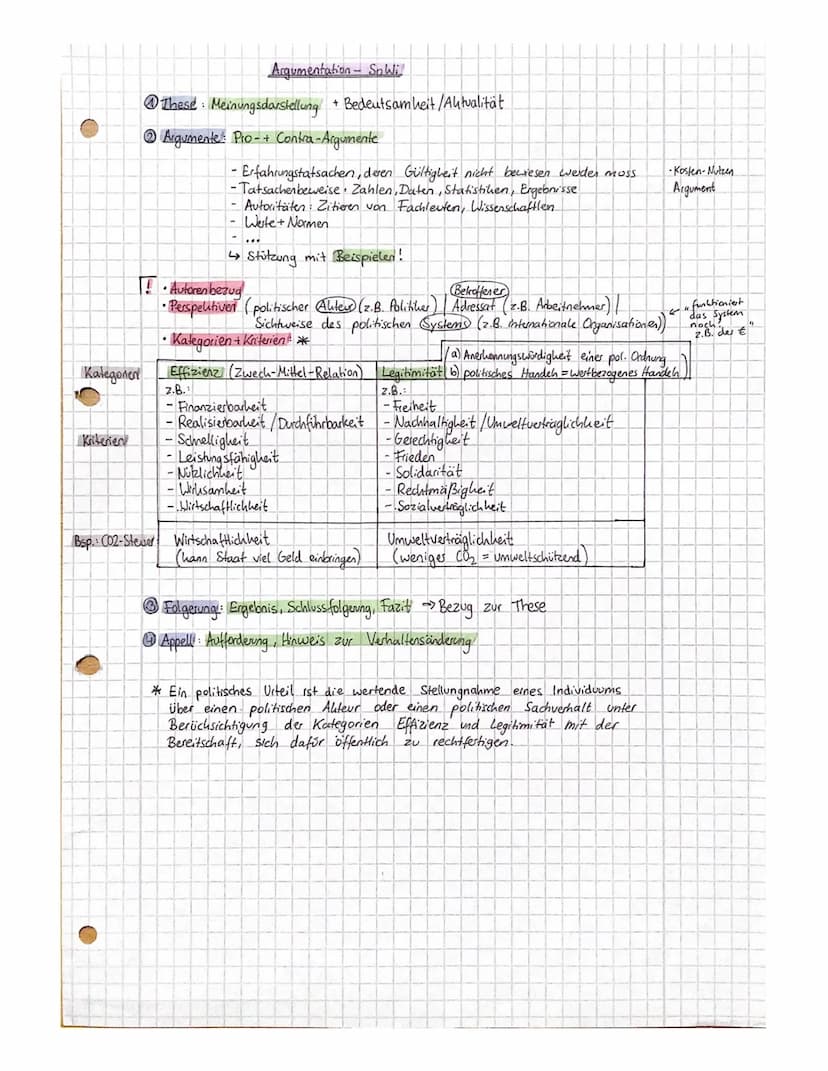 Argumentation - SoWi
① These: Meinungsdarstellung + Bedeutsamkeit/Aktualität
② Argumente: Pro- + Contra-Argumente
- Erfahrungstatsachen, deren Gültigkeit nicht bewiesen werden muss
- Tatsachenbeweise: Zahlen, Daten, Statistiken, Ergebnisse
- Autoritäten: Zitieren von Fachleuten, Wissenschaftlern
- Werte + Normen
- ...
↳ Stützung mit Beispielen!
· Kosten-Nutzen
Argument
! · Autorenbezug
Betroffener
· Perspektiven (politischer Akteur (z.B. Politiker) | Adressat (z.B. Arbeitnehmer) |
Sichtweise des politischen Systems (z.B. Internationale Organisationen))
← "funktioniert
das System
noch"
z.B. der €
· Kategorien + Kriterien: *
Kategorien
Effizienz (Zweck-Mittel-Relation)
Legitimität (a) Anerkennungswürdigkeit einer pol. Ordnung
b) politisches Handeln = wertbezogenes Handeln)
Kriterien
z.B.:
- Finanzierbarkeit
- Realisierbarkeit / Durchführbarkeit
- Schnelligkeit
- Leistungsfähigkeit
- Nützlichkeit
- Wirksamkeit
- Wirtschaftlichkeit
z.B.:
- Freiheit
- Nachhaltigkeit / Umweltverträglichkeit
- Gerechtigkeit
- Frieden
- Solidarität
- Rechtmäßigkeit
- Sozialverträglichkeit
Bsp.: CO2-Steuer
Wirtschaftlichkeit
(kann Staat viel Geld einbringen)
Umweltverträglichkeit
(weniger CO₂ = umweltschützend)
③ Folgerung: Ergebnis, Schlussfolgerung, Fazit → Bezug zur These
④ Appell: Aufforderung, Hinweis zur Verhaltensänderung
* Ein politisches Urteil ist die wertende Stellungnahme eines Individuums
über einen politischen Akteur oder einen politischen Sachverhalt unter
Berücksichtigung der Kategorien Effizienz und Legitimität mit der
Bereitschaft, sich dafür öffentlich zu rechtfertigen.